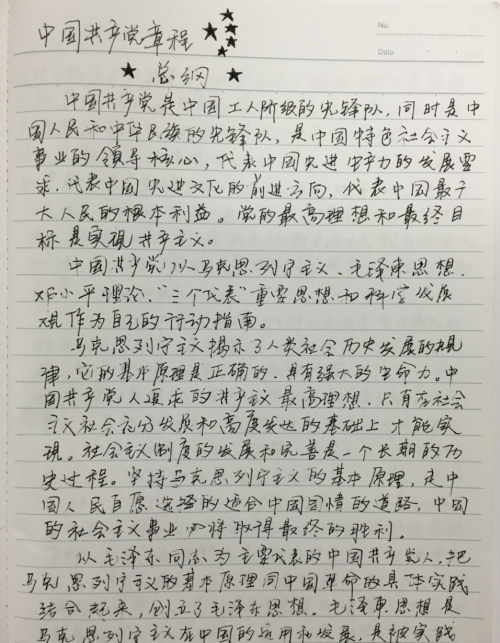 No.
Date
中国共产党章程
总纲
中国共产党是中国工人阶级的先锋队，同时是中
国人民和中华民族的先锋队，是中国特色社会主义
事业的领导核心，代表中国先进生产力的发展要
求，代表中国先进文化的前进方向，代表中国最广
大人民的根本利益。党的最高理想和最终目
标是实现共产主义。
中国共产党以马克思列宁主义、毛泽东思想、
邓小平理论、“三个代表”重要思想和科学发展
观作为自己的行动指南。
马克思列宁主义揭示了人类社会历史发展的规
律，它的基本原理是正确的，具有强大的生命力。中
国共产党人追求的共产主义最高理想，只有在社会
主义社会充分发展和高度发达的基础上才能实
现。社会主义制度的发展和完善是一个长期的历
史过程。坚持马克思列宁主义的基本原理，走中
国人民自愿选择的适合中国国情的道路，中国
的社会主义事业必将取得最终的胜利。
以毛泽东同志为主要代表的中国共产党人，把
马克思列宁主义的基本原理同中国革命的具体实践
结合起来，创立了毛泽东思想。毛泽东思想是
马克思列宁主义在中国的运用和发展，是被实践